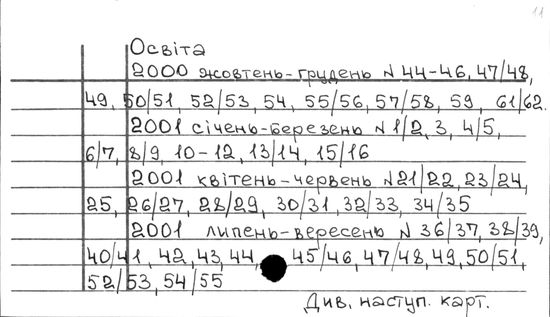 11
Освіта
2000 жовтень-грудень N 44-46, 47/48,
49, 50/51, 52/53, 54, 55/56, 57/58, 59, 61/62.
2001 січень-березень N 1/2, 3, 4/5,
6/7, 8/9, 10-12, 13/14, 15/16
2001 квітень-червень N 21/22, 23/24,
25, 26/27, 28/29, 30/31, 32/33, 34/35
2001 липень-вересень N 36/37, 38/39,
40/41, 42, 43, 44, 45/46, 47/48, 49, 50/51,
52/53, 54/55
Див. наступ. карт.